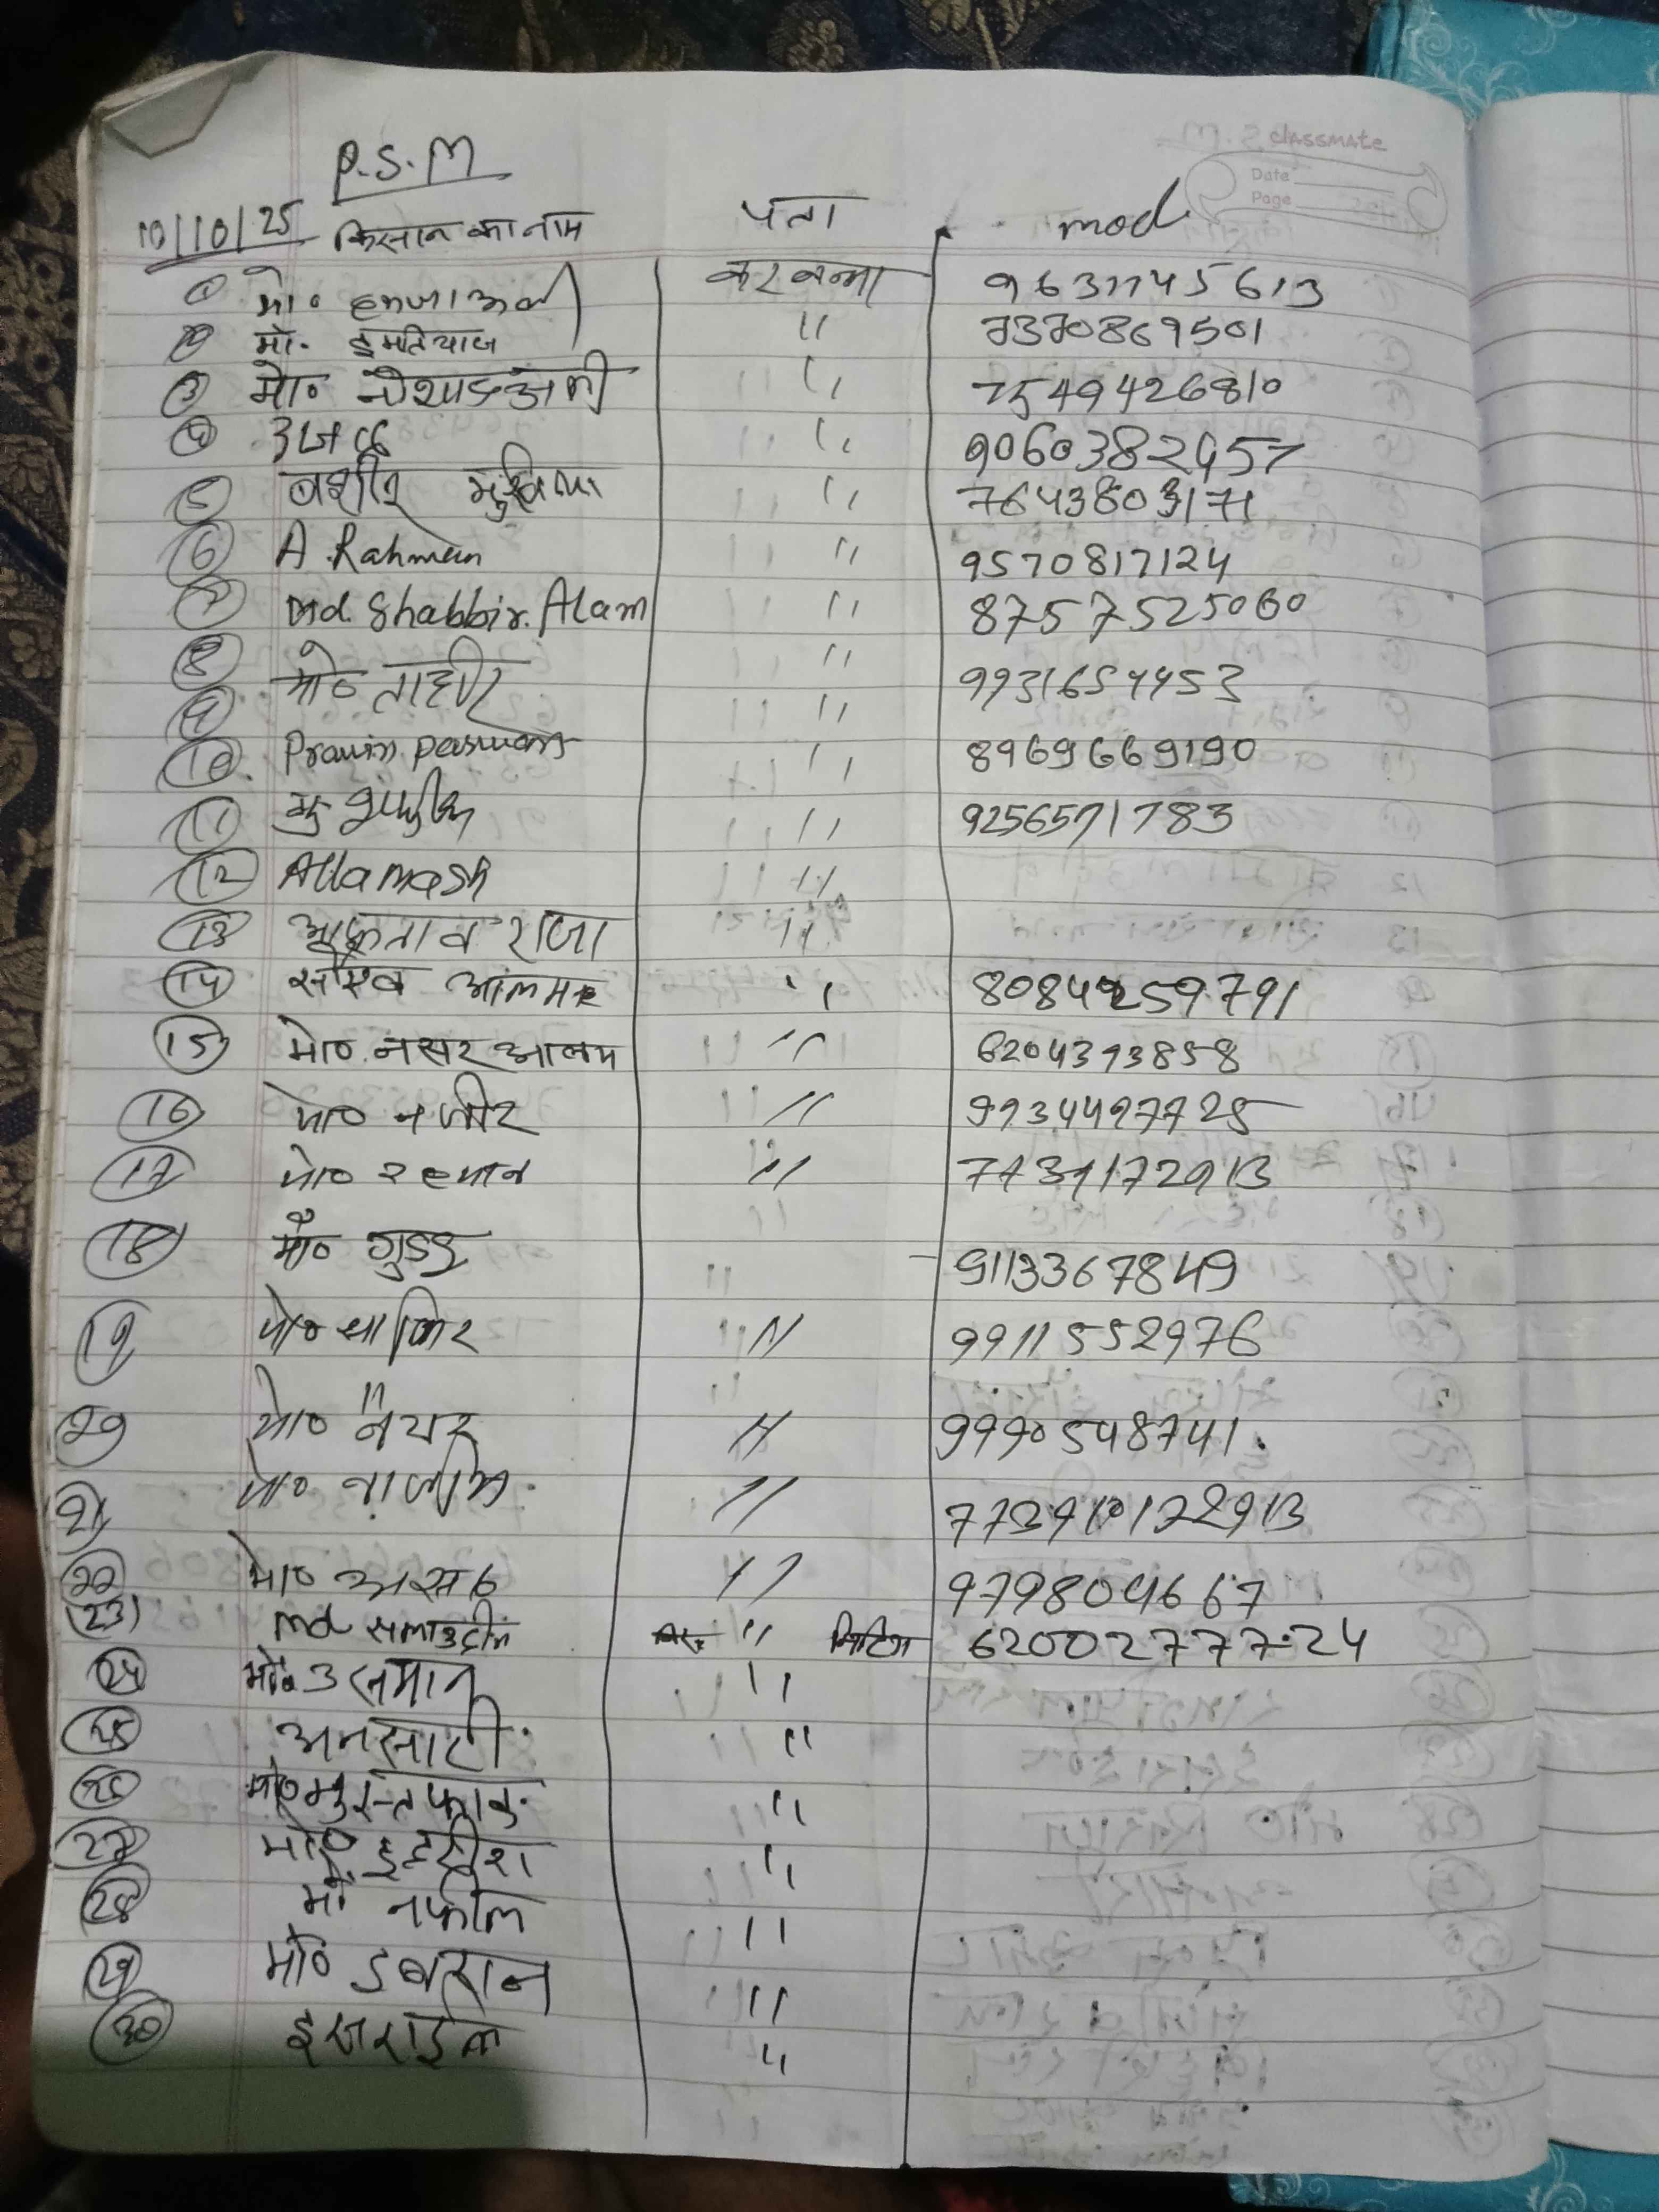 classmate
Date
Page
P.S.M
10/10/25 किसान का नाम पता mod
① मो० हमजा अली करबन्ना 9631145613
② मो. इमतियाज " 7370869501
③ मो० नौशाद अली " 7549426810
④ "
⑤ बशीर मुखिया " 7643803171
⑥ A. Rahman " 9570817124
⑦ Md. Shabbir. Alam " 8757525060
⑧ मो० ताहीर " 9931654453
⑨ "
⑩ Prawin paswan " 8969669190
⑪ मु " 9256571783
⑫ Allamash "
⑬ आफताब राजा "
⑭ आलम "
⑮ मो० नसर आलम " 6204393858
⑯ मो० नजीर " 9934497725
⑰ मो० रहमान " 7739172913
⑱ मो० गुडडु " 9113367849
⑲ मो० शाकिर " 9911552976
⑳ मो० नैयर " 9990548741
21 मो० नाजीम "
22 मो० " 979804667
(23) md समाउद्दीन " 6200277724
24 मो० उसमान "
25 अनसारी "
26 मो० "
27 मो० इदरीश "
28 मो० नफील "
29 मो० "
30 इजराईल "